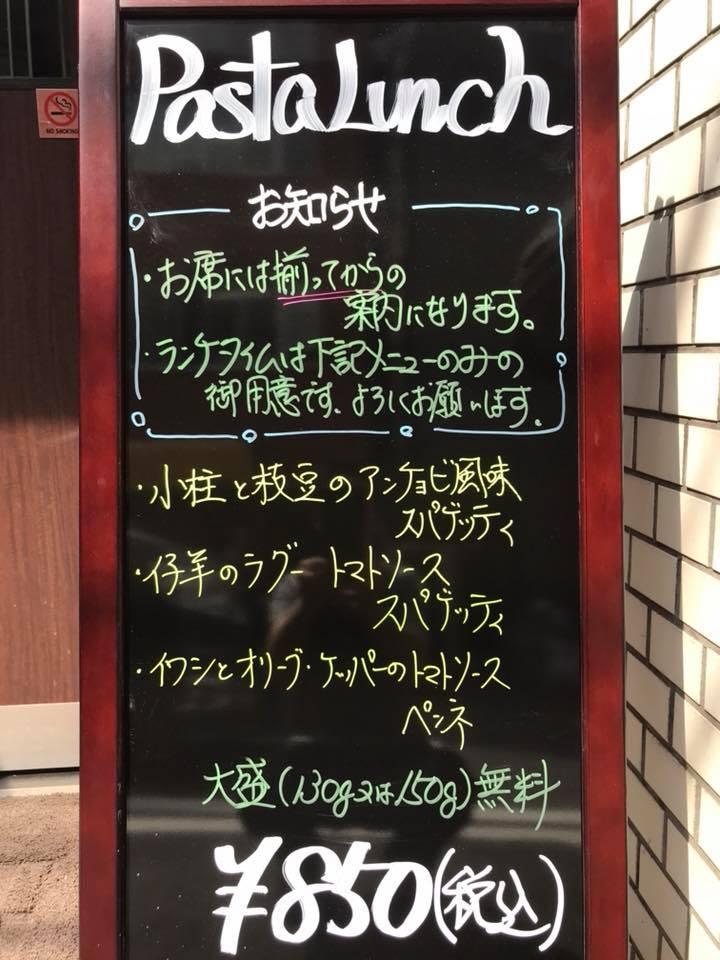 NO SMOKING
Pasta Lunch
お知らせ
・お席には揃ってからの
案内になります。
・ランチタイムは下記メニューのみの
御用意です、よろしくお願います。
・小柱と枝豆のアンチョビ風味
スパゲッティ
・仔羊のラグートマトソース
スパゲッティ
・イワシとオリーブ・ケッパーのトマトソース
ペンネ
大盛(130g又は150g)無料
¥850(税込)